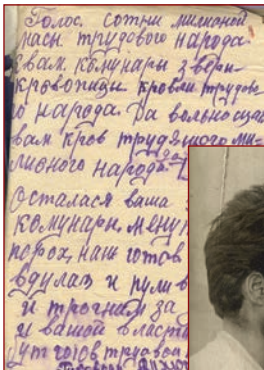 Голос. сотни милионой
масы трудового народа.
вам комунары звери-
кровопийцы кровли трудово
о народа. Да вольно сцать
вам кров трудящого ми-
лионого народа.
Осталася ваша
комунары. мену
порох, наш готов
вдулах и пули в
и трогнам за
и вашой власти
ут готов трудовой